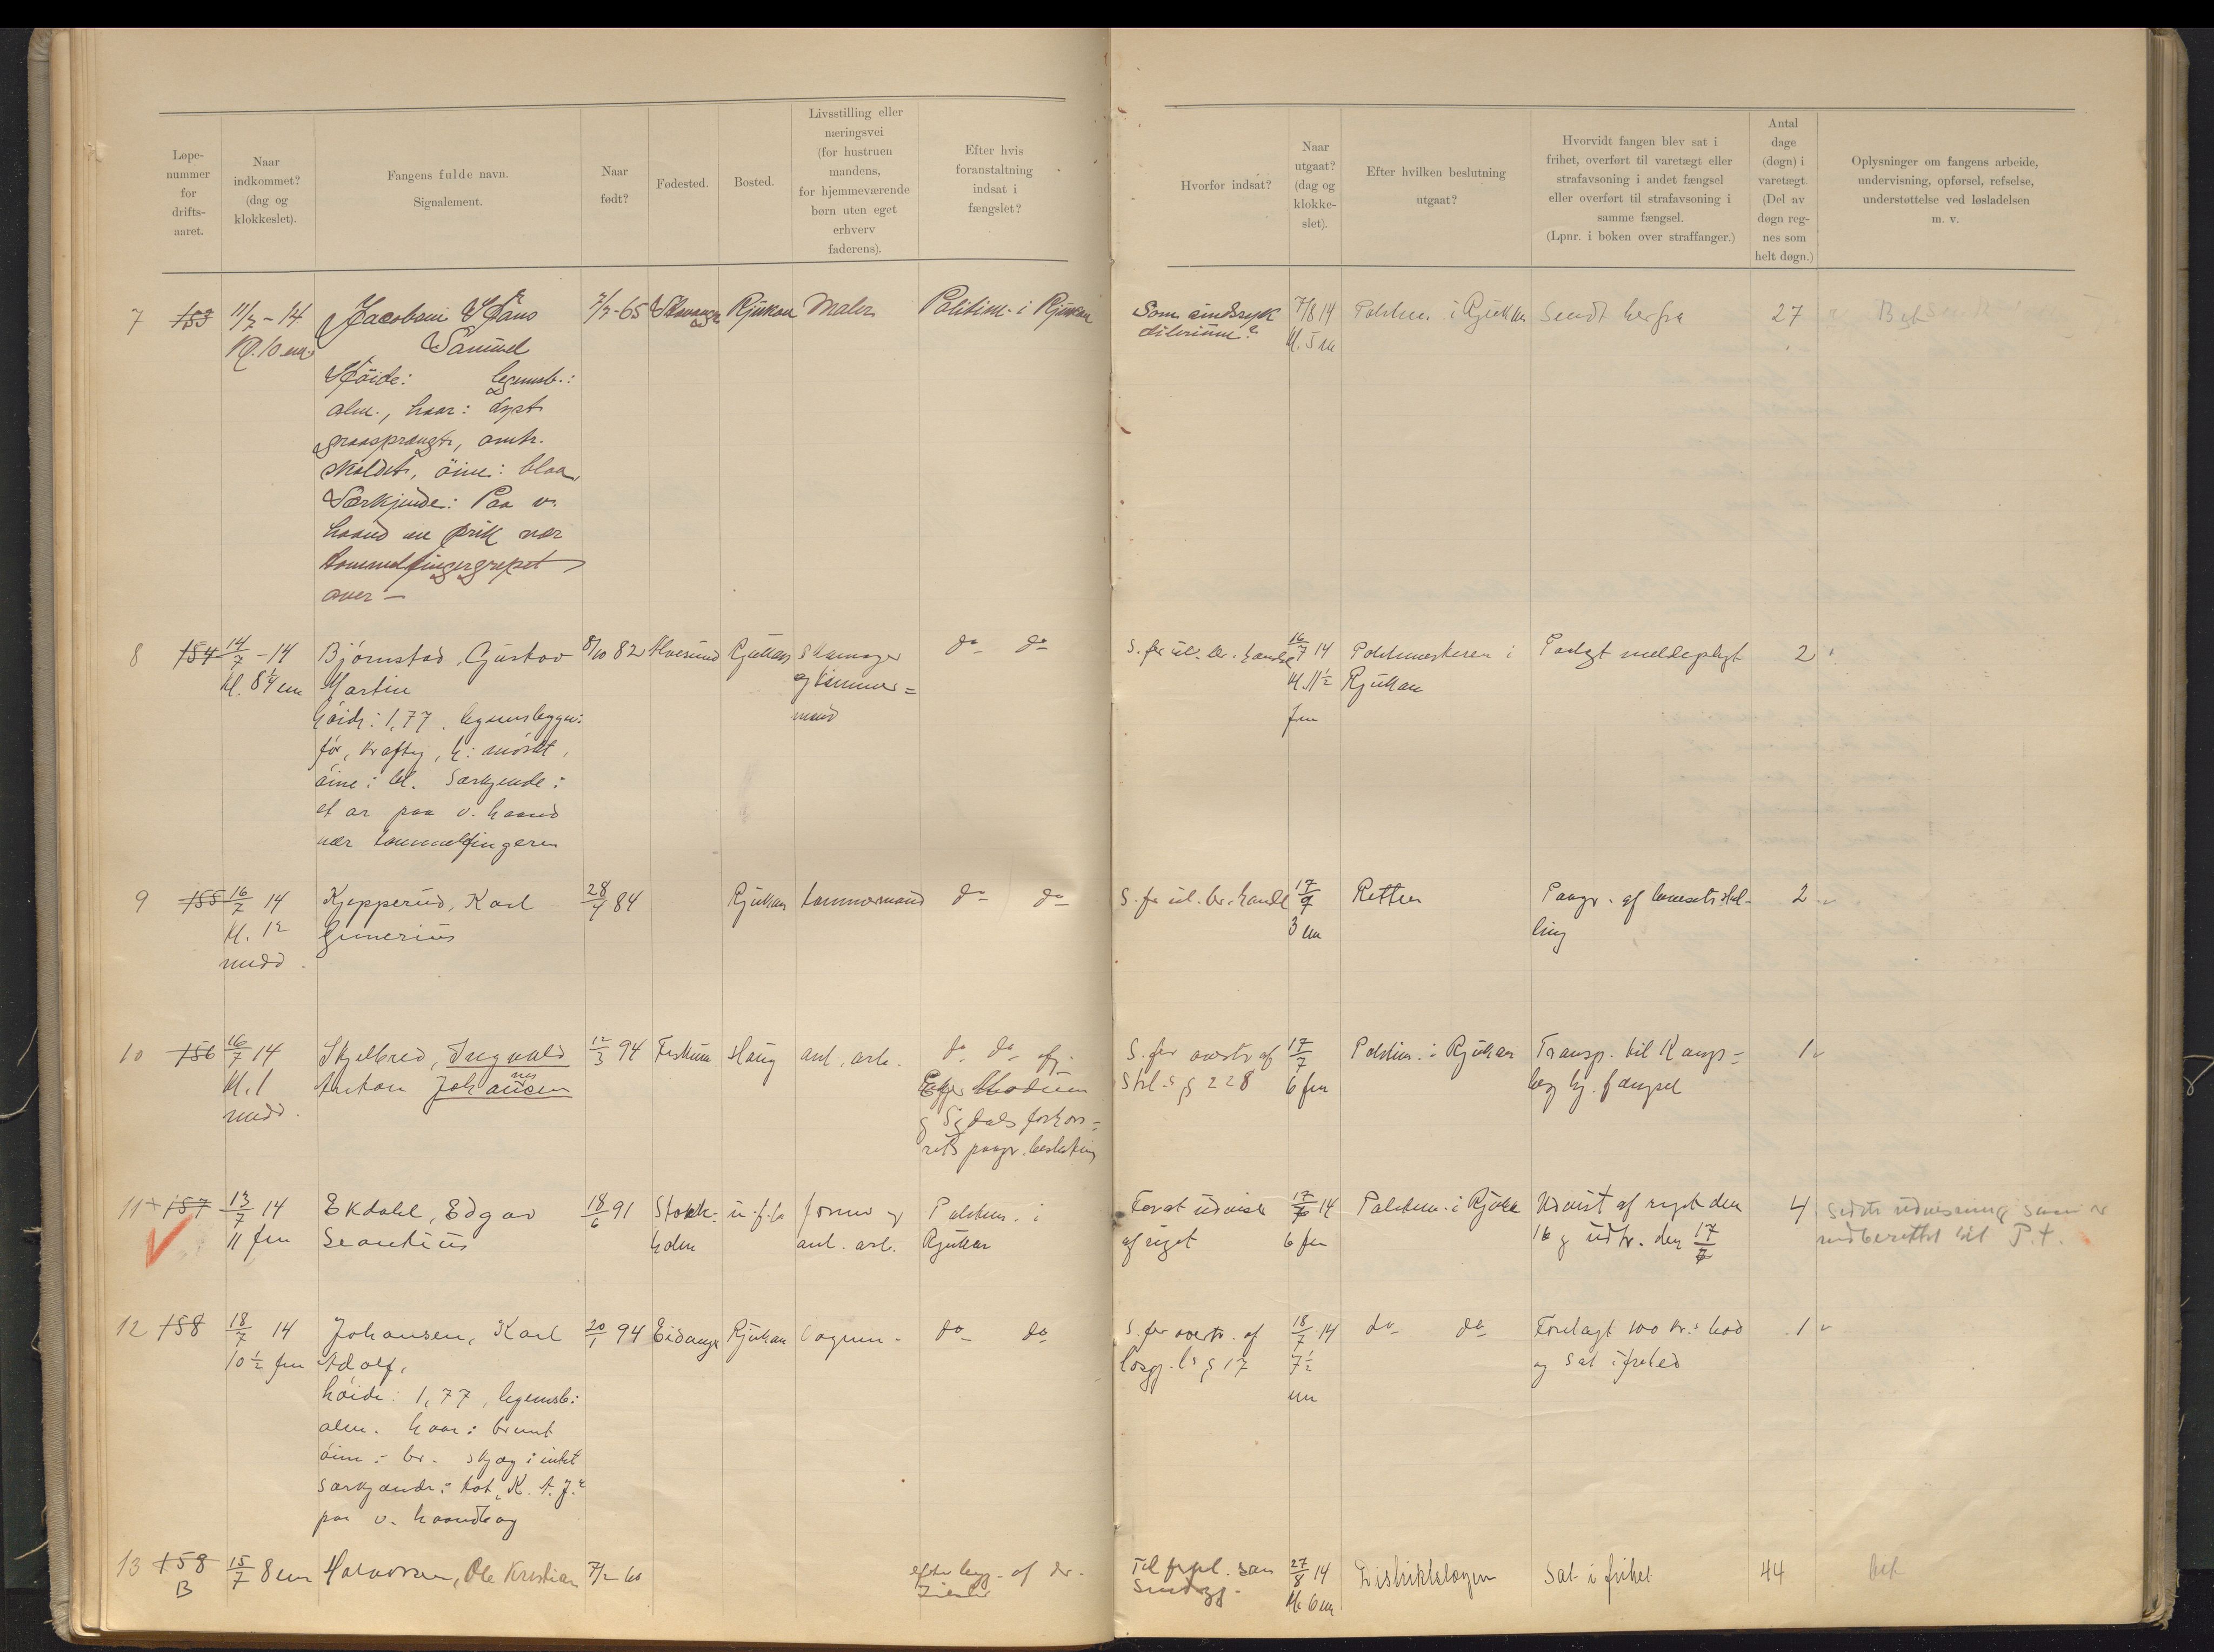 Løpe-
nummer
for
drifts-
aaret.
Naar
indkommet?
(dag og
klokkeslet).
Fangens fulde navn.
Signalement.
Naar
født?
Fødested.
Bosted.
Livsstilling eller
næringsvei
(for hustruen
mandens,
for hjemmeværende
børn uten eget
erhverv
faderens).
Efter hvis
foranstaltning
indsat i
fængslet?
Hvorfor indsat?
Naar
utgaat?
(dag og
klokke-
slet).
Efter hvilken beslutning
utgaat?
Hvorvidt fangen blev sat i
frihet, overført til varetægt eller
strafavsoning i andet fængsel
eller overført til strafavsoning i
samme fængsel.
(Lpnr. i boken over straffanger.)
Antal
dage
(døgn) i
varetægt.
(Del av
døgn reg-
nes som
helt døgn.)
Oplysninger om fangens arbeide,
undervisning, opførsel, refselse,
understøttelse ved løsladelsen
m. v.
7 153 11/7 - 14
Kl. 10 em.
Jacobsen
Samuel
Høide: legemsb.:
alm., haar: lyst
graasprængt, omtr.
skaldet, öine: blaa
Særkjende: Paa v.
haand en prik nær
tommelfingergrepet
over —
7/7-65 Stavanger Rjukan Maler Politim. i Rjukan
Som sindssyk
dilerium?
7/8 14
kl. 5 em
Politim. i Rjukan
Sendt herfra
27
8 154 14/7 - 14
kl. 8 1/4 em
Bjørnstad, Gustav
Martin
höide: 1,77, legemsbygn:
før, kraftig, h: mörkt,
öine: bl. Særkjende:
et ar paa v. haand
nær tommelfingeren
8/10 82 Rjukan
Skomager
og tømmer=
mand
do do
S. for ul. br. handel
16/7 14
kl. 11 1/2
fm
Politimesteren i
Rjukan
Paalagt meldepligt
2
9 155 16/7 14
kl. 12
midd.
Kjepperud, Karl
Gunerius
28/4 84 Rjukan tømmermand do do
S. for ul. br. handel
17/7
3 em
Retten
Paagr. af
ling
2
10 156 16/7 14
kl. 1
midd.
Skjelbred, Ingvald
Anton Johansen
nes
12/3 94 Fiskum Haug anl. arb.
do do
Modum
og Sigdals forhørs=
rets paagr. beslutning
S. for overtr. af
Strl.s § 228
17/7
6 fm
Politim. i Rjukan
Transp. til Kongs=
berg hj. fængsel
1
11 157 13/7 14
11 fm
Ekdahl, Edgar
Leontius
18/6 91 Stock-
holm
u. f. b.
former og
anl. arb.
Politim. i
Rjukan
Forat udvises
af riget
17/7 14
6 fm
Politim. i Rjukan
Udvist af riget den
16 og udtr. den 17/7
4
Sidste udvisning som er
indberettet til P.t.
12 158 18/7 14
10 1/2 fm
Johansen, Karl
Adolf,
höide: 1,77, legemsb:
alm. haar: brunt
öine: br. skjæg: intet
særkjende: tat. "K. A. J."
paa v. haandbag
20/1 94 Eidanger Rjukan Vognm.
do do
S. for overtr. af
løsgj. ls § 17
18/7 14
7 1/2
em
do do
Forelagt 100 kr.s bod
og sat i frihed
1
13 158
B
15/7 8 em
Halvorsen, Ole Kristian
7/2 60
efter begj. af dr.
Til forpl. som
sindssyg.
27/8 14
Kl. 6 em
Distriktslægen
Sat i frihet
44